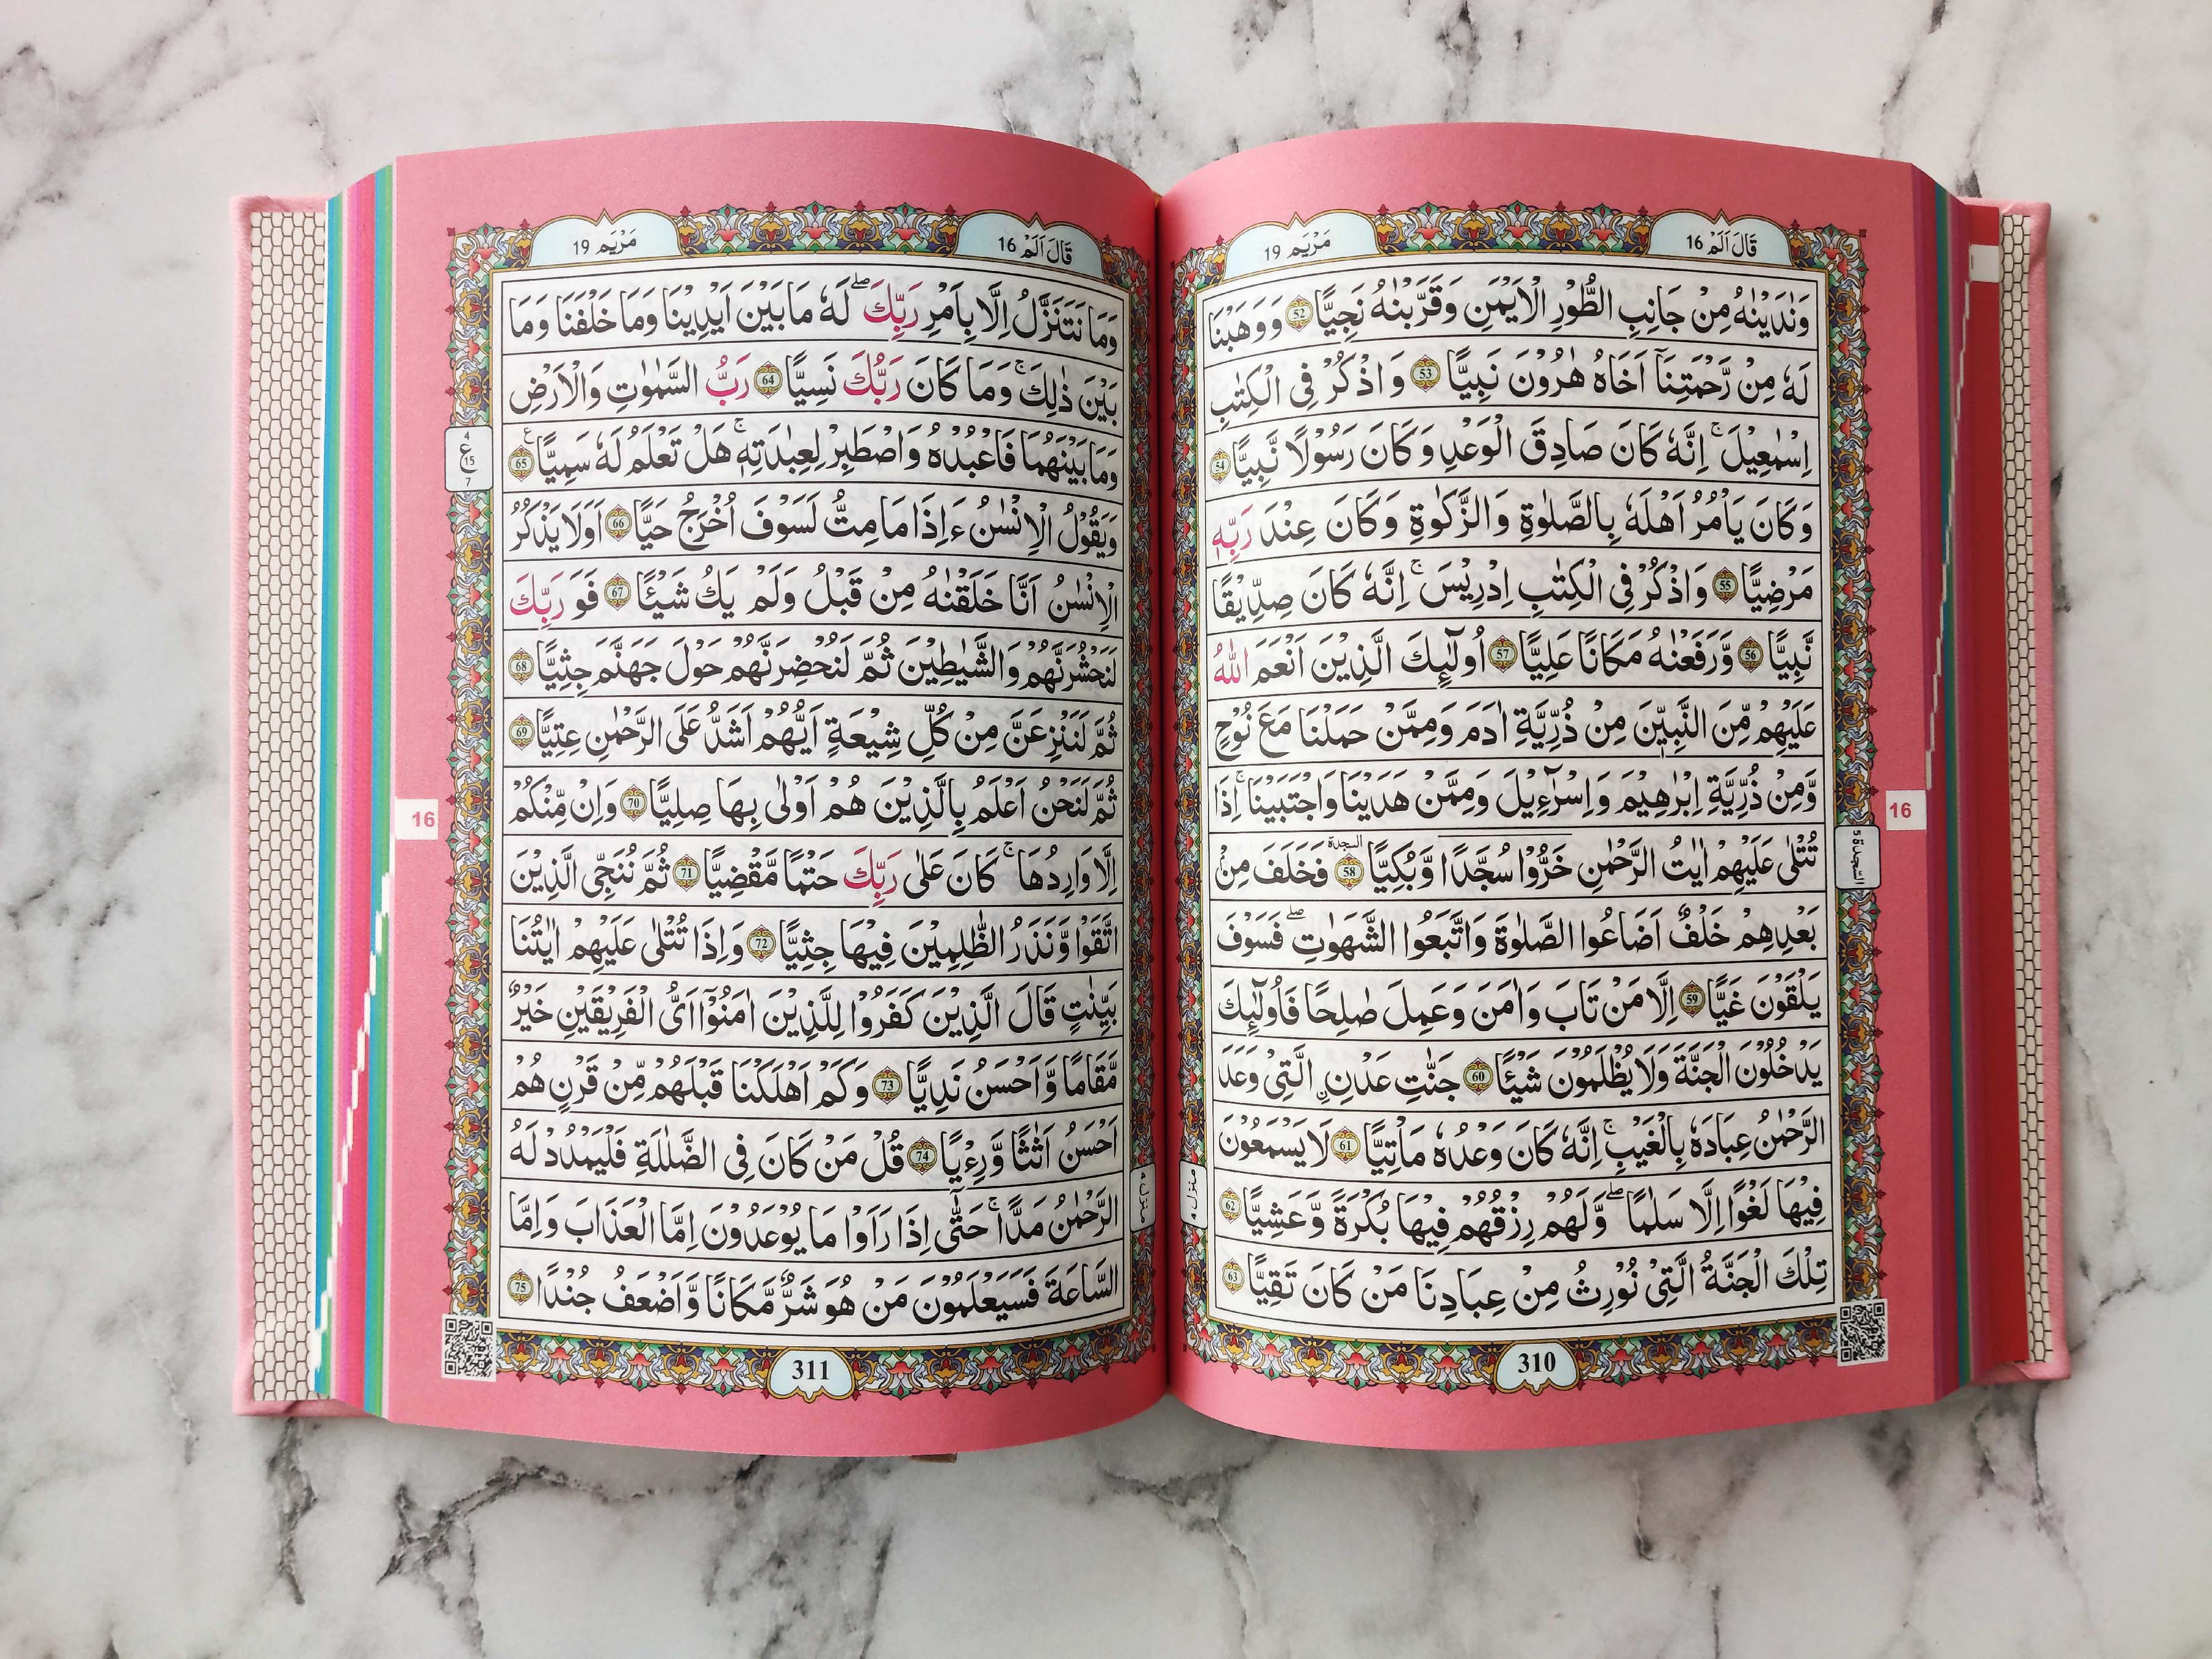 قَالَ اَلَمْ 16
مَرْيَم 19
وَنَادَيْنٰهُ مِنْ جَانِبِ الطُّوْرِ الْاَيْمَنِ وَقَرَّبْنٰهُ نَجِيًّا 52 وَوَهَبْنَا
لَهٗ مِنْ رَّحْمَتِنَآ اَخَاهُ هٰرُوْنَ نَبِيًّا 53 وَاذْكُرْ فِى الْكِتٰبِ
اِسْمٰعِيْلَ ۚ اِنَّهٗ كَانَ صَادِقَ الْوَعْدِ وَكَانَ رَسُوْلًا نَّبِيًّا 54
وَكَانَ يَاْمُرُ اَهْلَهٗ بِالصَّلٰوةِ وَالزَّكٰوةِ وَكَانَ عِنْدَ رَبِّهٖ
مَرْضِيًّا 55 وَاذْكُرْ فِى الْكِتٰبِ اِدْرِيْسَ ۚ اِنَّهٗ كَانَ صِدِّيْقًا
نَّبِيًّا 56 وَّرَفَعْنٰهُ مَكَانًا عَلِيًّا 57 اُولٰٓئِكَ الَّذِيْنَ اَنْعَمَ اللّٰهُ
عَلَيْهِمْ مِّنَ النَّبِيّٖنَ مِنْ ذُرِّيَّةِ اٰدَمَ وَمِمَّنْ حَمَلْنَا مَعَ نُوْحٍ
وَّمِنْ ذُرِّيَّةِ اِبْرٰهِيْمَ وَاِسْرَآءِيْلَ وَمِمَّنْ هَدَيْنَا وَاجْتَبَيْنَا ۚ اِذَا
تُتْلٰى عَلَيْهِمْ اٰيٰتُ الرَّحْمٰنِ خَرُّوْا سُجَّدًا وَّبُكِيًّا السجدة 58 فَخَلَفَ مِنْ
بَعْدِهِمْ خَلْفٌ اَضَاعُوا الصَّلٰوةَ وَاتَّبَعُوا الشَّهَوٰتِ ۖ فَسَوْفَ
يَلْقَوْنَ غَيًّا 59 اِلَّا مَنْ تَابَ وَاٰمَنَ وَعَمِلَ صٰلِحًا فَاُولٰٓئِكَ
يَدْخُلُوْنَ الْجَنَّةَ وَلَا يُظْلَمُوْنَ شَيْـًٔا 60 جَنّٰتِ عَدْنِ ۨ الَّتِيْ وَعَدَ
الرَّحْمٰنُ عِبَادَهٗ بِالْغَيْبِ ۚ اِنَّهٗ كَانَ وَعْدُهٗ مَاْتِيًّا 61 لَا يَسْمَعُوْنَ
فِيْهَا لَغْوًا اِلَّا سَلٰمًا ۖ وَلَهُمْ رِزْقُهُمْ فِيْهَا بُكْرَةً وَّعَشِيًّا 62
تِلْكَ الْجَنَّةُ الَّتِيْ نُوْرِثُ مِنْ عِبَادِنَا مَنْ كَانَ تَقِيًّا 63
السجدة 5
16
منزل 4
310
قَالَ اَلَمْ 16
مَرْيَم 19
وَمَا نَتَنَزَّلُ اِلَّا بِاَمْرِ رَبِّكَ ۖ لَهٗ مَا بَيْنَ اَيْدِيْنَا وَمَا خَلْفَنَا وَمَا
بَيْنَ ذٰلِكَ ۚ وَمَا كَانَ رَبُّكَ نَسِيًّا 64 رَبُّ السَّمٰوٰتِ وَالْاَرْضِ
وَمَا بَيْنَهُمَا فَاعْبُدْهُ وَاصْطَبِرْ لِعِبٰدَتِهٖ ۚ هَلْ تَعْلَمُ لَهٗ سَمِيًّا ع 65
وَيَقُوْلُ الْاِنْسٰنُ ءَاِذَا مَا مِتُّ لَسَوْفَ اُخْرَجُ حَيًّا 66 اَوَلَا يَذْكُرُ
الْاِنْسٰنُ اَنَّا خَلَقْنٰهُ مِنْ قَبْلُ وَلَمْ يَكُ شَيْـًٔا 67 فَوَرَبِّكَ
لَنَحْشُرَنَّهُمْ وَالشَّيٰطِيْنَ ثُمَّ لَنُحْضِرَنَّهُمْ حَوْلَ جَهَنَّمَ جِثِيًّا 68
ثُمَّ لَنَنْزِعَنَّ مِنْ كُلِّ شِيْعَةٍ اَيُّهُمْ اَشَدُّ عَلَى الرَّحْمٰنِ عِتِيًّا 69
ثُمَّ لَنَحْنُ اَعْلَمُ بِالَّذِيْنَ هُمْ اَوْلٰى بِهَا صِلِيًّا 70 وَاِنْ مِّنْكُمْ
اِلَّا وَارِدُهَا ۚ كَانَ عَلٰى رَبِّكَ حَتْمًا مَّقْضِيًّا 71 ثُمَّ نُنَجِّى الَّذِيْنَ
اتَّقَوْا وَّنَذَرُ الظّٰلِمِيْنَ فِيْهَا جِثِيًّا 72 وَاِذَا تُتْلٰى عَلَيْهِمْ اٰيٰتُنَا
بَيِّنٰتٍ قَالَ الَّذِيْنَ كَفَرُوْا لِلَّذِيْنَ اٰمَنُوْٓا اَىُّ الْفَرِيْقَيْنِ خَيْرٌ
مَّقَامًا وَّاَحْسَنُ نَدِيًّا 73 وَكَمْ اَهْلَكْنَا قَبْلَهُمْ مِّنْ قَرْنٍ هُمْ
اَحْسَنُ اَثٰثًا وَّرِءْيًا 74 قُلْ مَنْ كَانَ فِى الضَّلٰلَةِ فَلْيَمْدُدْ لَهُ
الرَّحْمٰنُ مَدًّا ۚ حَتّٰٓى اِذَا رَاَوْا مَا يُوْعَدُوْنَ اِمَّا الْعَذَابَ وَاِمَّا
السَّاعَةَ فَسَيَعْلَمُوْنَ مَنْ هُوَ شَرٌّ مَّكَانًا وَّاَضْعَفُ جُنْدًا 75
4
ع
15
7
16
منزل 4
311